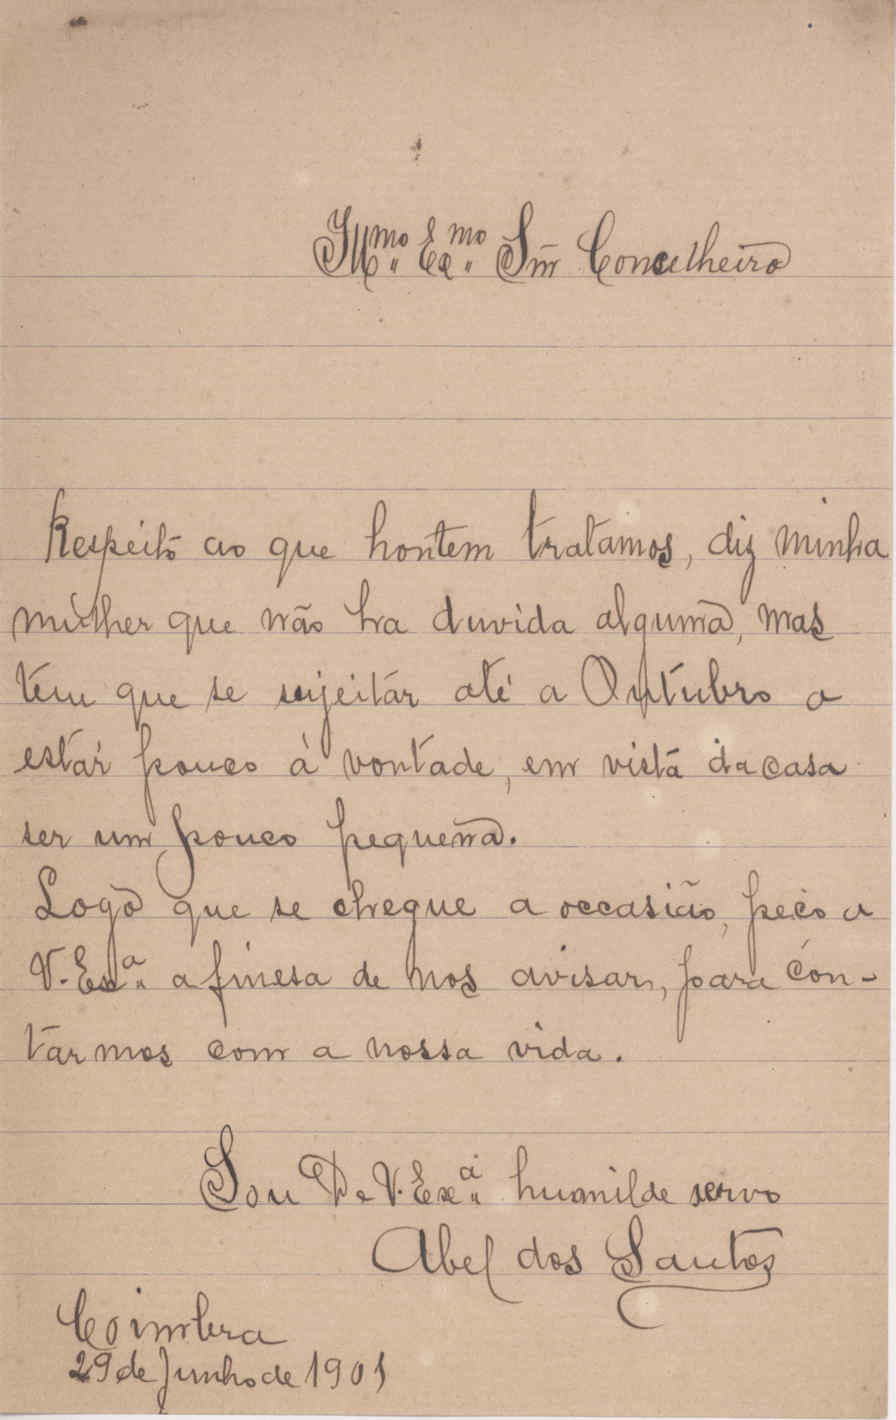 Illmo. Exmo. Snr Concelheiro
Respeito ao que hontem tratamos, diz minha
mulher que não ha duvida alguma, mas
tem que se sujeitar até a Outubro a
estar pouco à vontade, em vista da casa
ser um pouco pequena.
Logo que se chegue a occasião, peço a
V. Exa. a finesa de nos avisar, para con-
tarmos com a nossa vida.
Sou De V. Exa. humilde servo
Abel dos Santos
Coimbra
29 de Junho de 1901